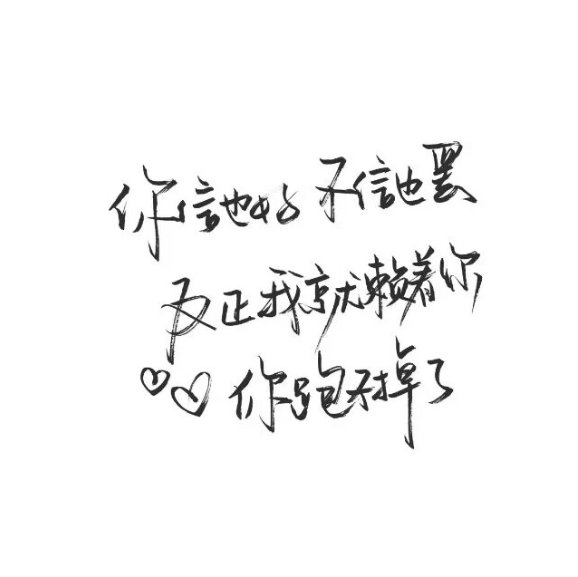 你信也好 不信也罢
反正我就赖着你
♡♡你跑不掉了